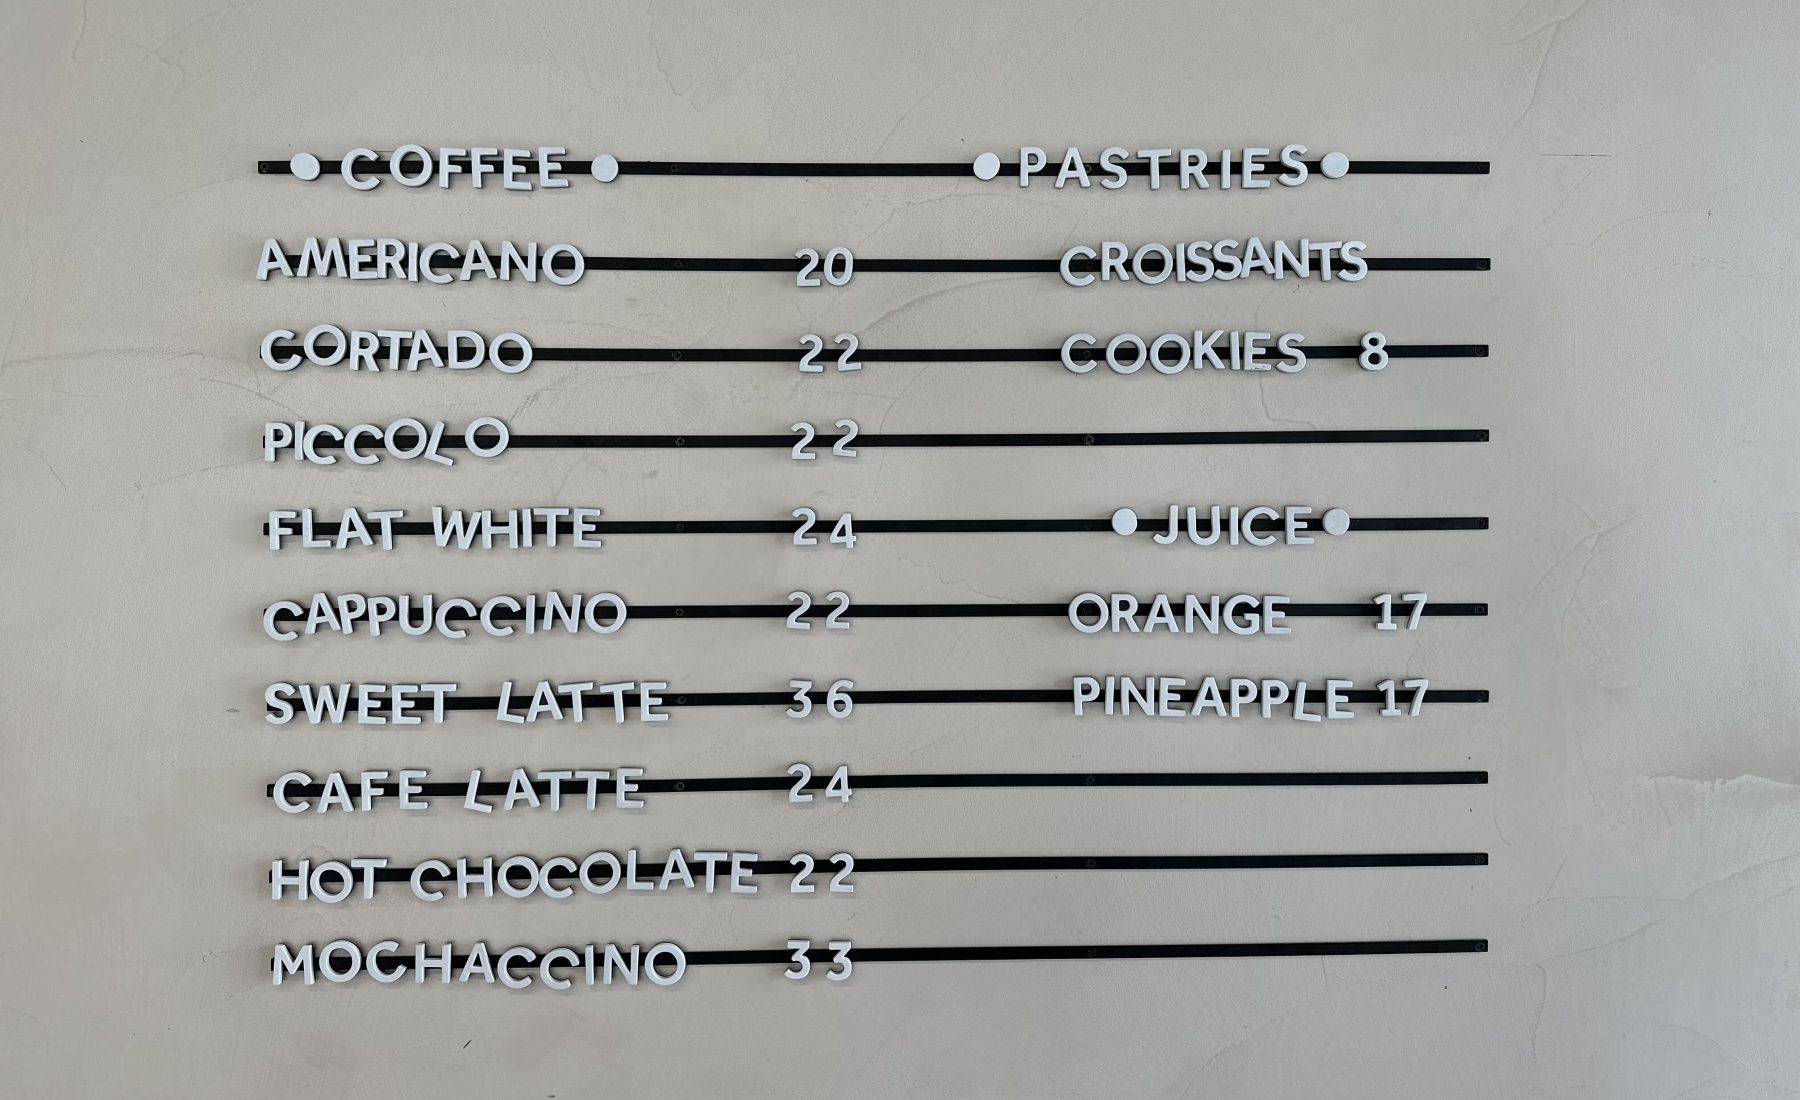 COFFEE
AMERICANO 20
CORTADO 22
PICCOLO 22
FLAT WHITE 24
CAPPUCCINO 22
SWEET LATTE 36
CAFE LATTE 24
HOT CHOCOLATE 22
MOCHACCINO 33
PASTRIES
CROISSANTS
COOKIES 8
JUICE
ORANGE 17
PINEAPPLE 17